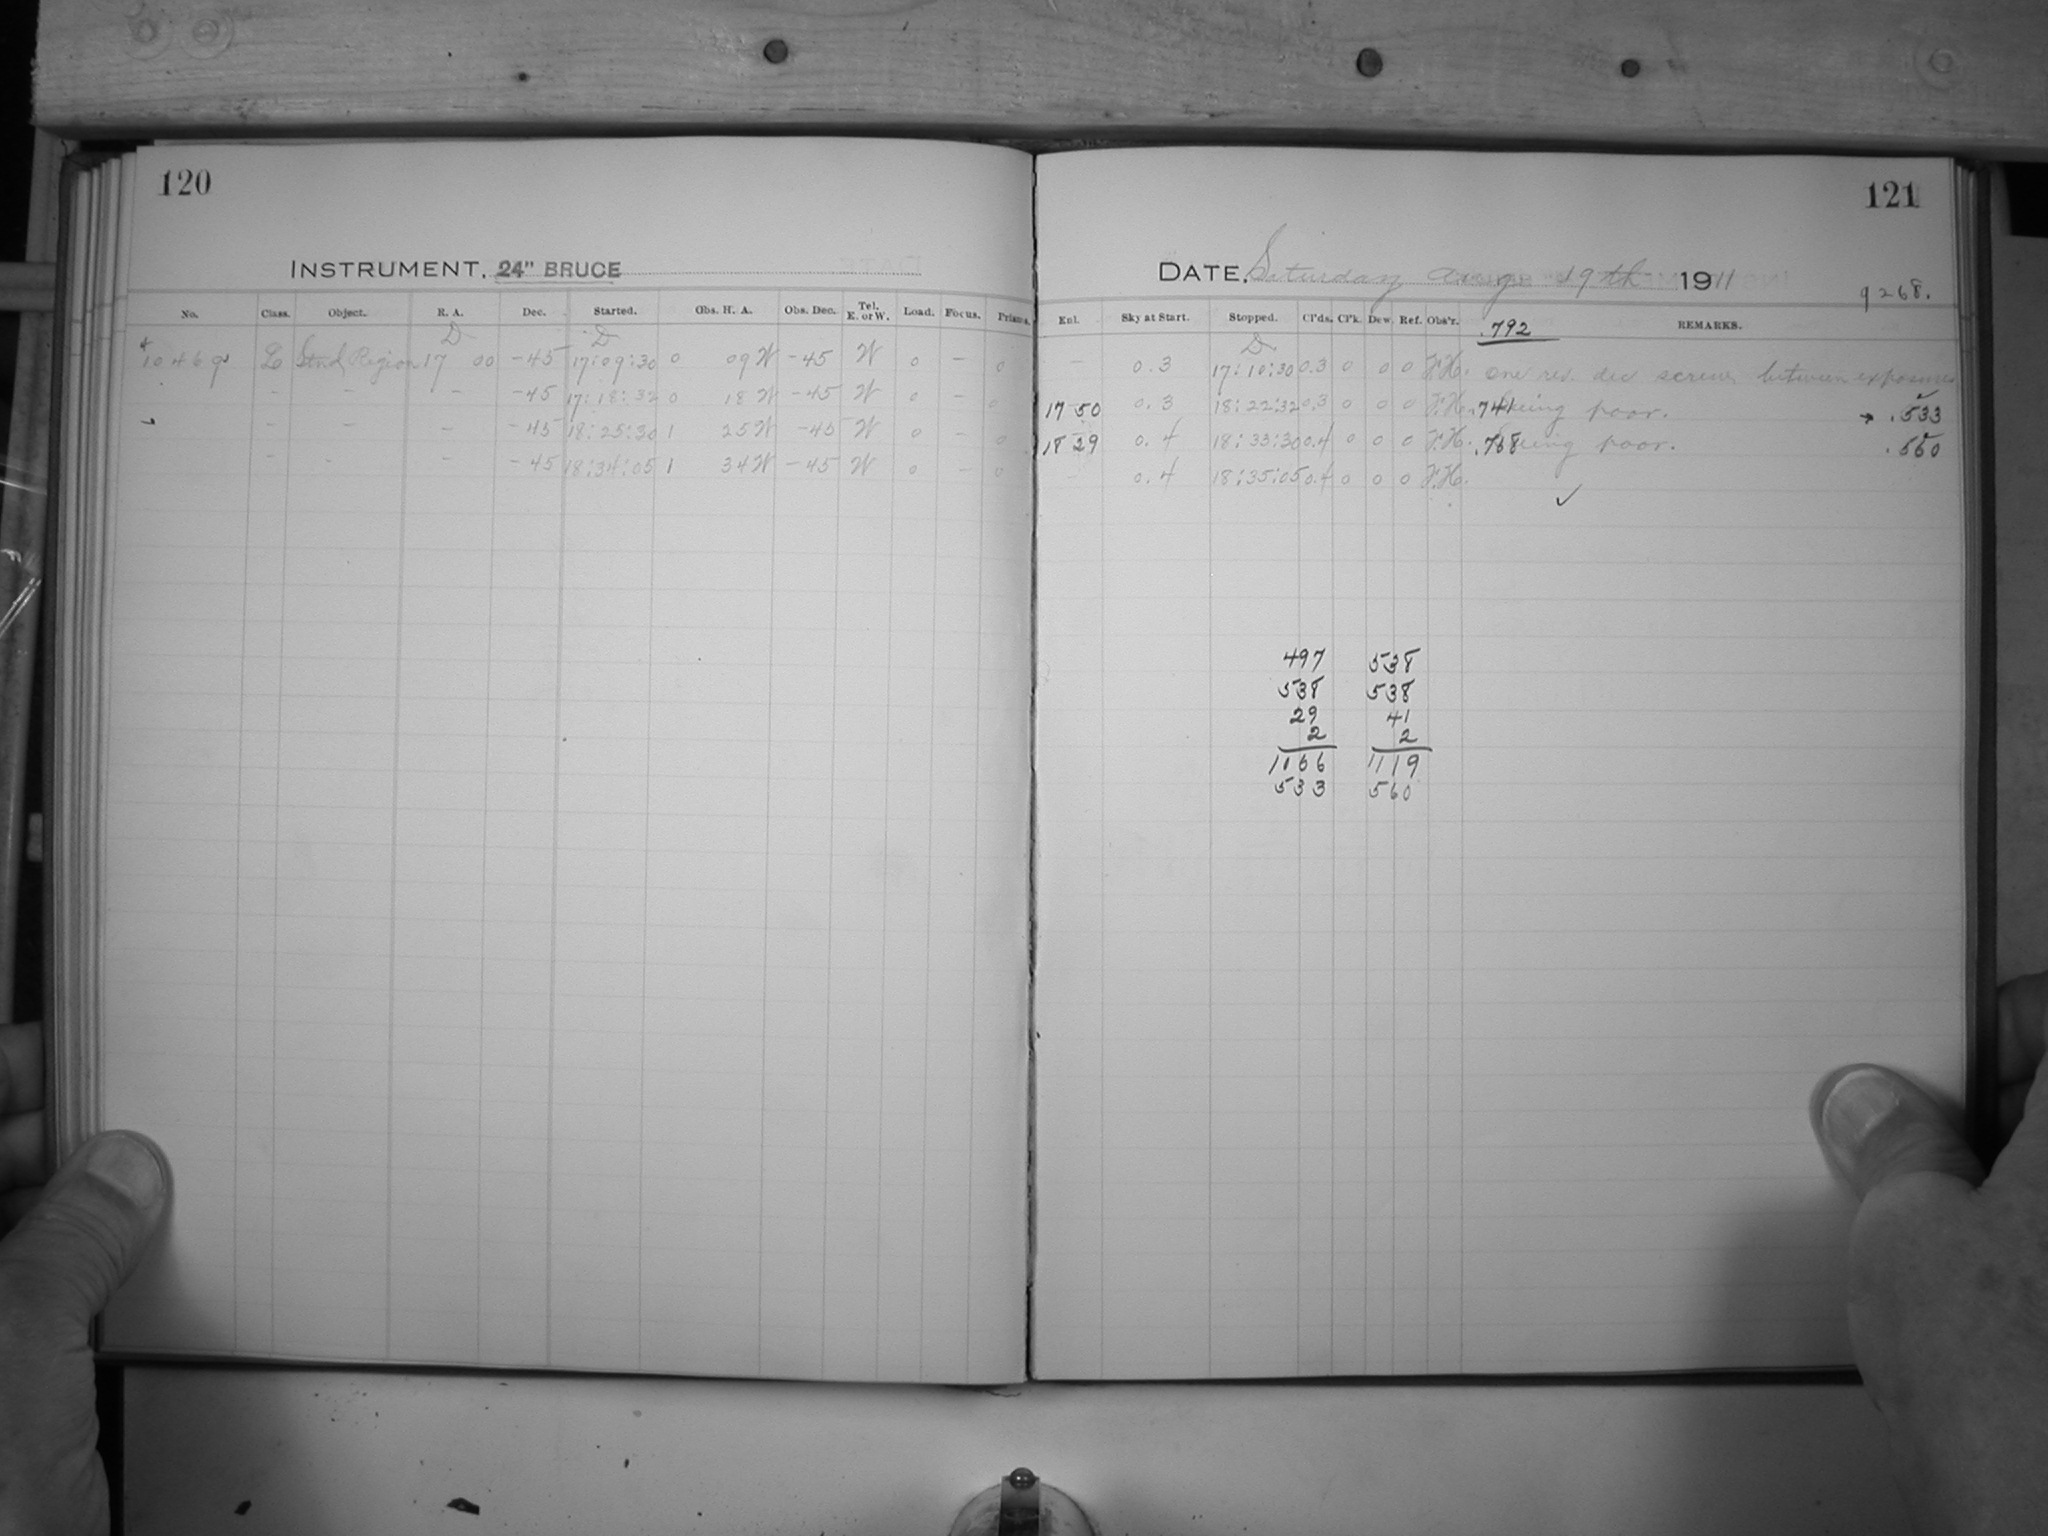 120
INSTRUMENT, 24" BRUCE
No. Class. Object. R. A. Dec. Started. Obs. H. A. Obs. Dec. Tel. E. or W. Load. Focus. Prisms.
D D
10469 L Stnd Region 17 00 -45 17:09:30 0 09 W -45 W 0 - 0
- - - -45 17:18:32 0 18 W -45 W 0 - 0
- - - -45 18:25:30 1 25 W -45 W 0 - 0
- - - -45 18:34:05 1 34 W -45 W 0 - 0
121
DATE, Saturday Aug 19th 1911
9268.
Ext. Sky at Start. Stopped. Cl'ds. Cl'k. Dew. Ref. Obs'r. .792 REMARKS.
D
- 0.3 17:10:30 0.3 0 0 0 F.H. one rev. dec screw between exposures
17 50 0.3 18:22:32 0.3 0 0 0 F.H. .741 Seeing poor. → .533
18 29 0.4 18:33:30 0.4 0 0 0 F.H. .768 Seeing poor. .560
0.4 18:35:05 0.4 0 0 0 F.H.
✓
497 538
538 538
29 41
2 2
1066 1119
533 560